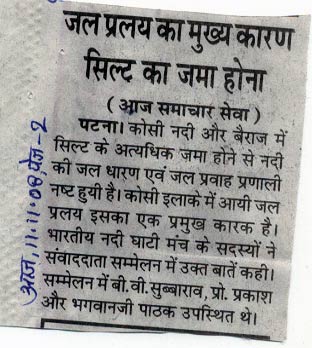 जल प्रलय का मुख्य कारण
सिल्ट का जमा होना
( आज समाचार सेवा )
पटना। कोसी नदी और बैराज में
सिल्ट के अत्यधिक जमा होने से नदी
की जल धारण एवं जल प्रवाह प्रणाली
नष्ट हुयी है। कोसी इलाके में आयी जल
प्रलय इसका एक प्रमुख कारक है।
भारतीय नदी घाटी मंच के सदस्यों ने
संवाददाता सम्मेलन में उक्त बातें कही।
सम्मेलन में बी.वी.सुब्बाराव, प्रो. प्रकाश
और भगवानजी पाठक उपस्थित थे।
आज, 11.11.08, पेज-2